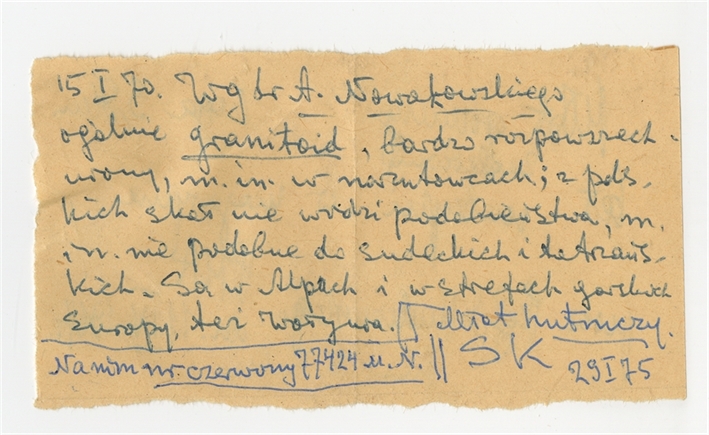 15 I 70. Wg dr A. Nowakowskiego
ogólnie granitoid, bardzo rozpowszech-
niony, m. in. w narzutowcach; z pols-
kich skał nie widzi podobieństwa, m.
in. nie podobne do sudeckich i tatrzańs-
kich. Są w Alpach i w strefach górskich
Europy, też Wołynia. Młot hutniczy.
Na nim nr. czerwony 77424 M.N. || SK
29 I 75